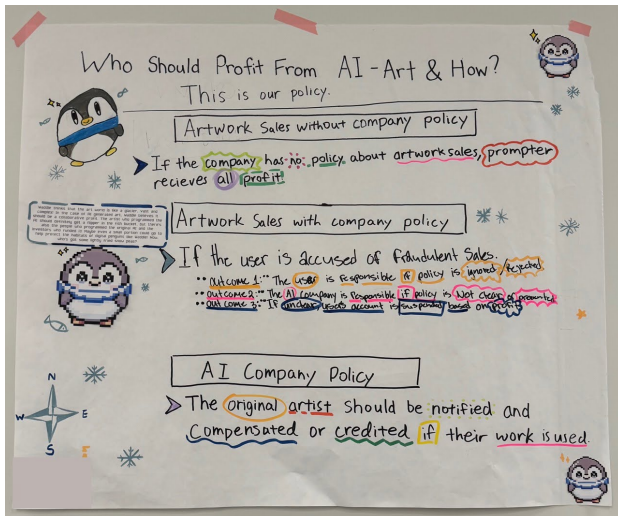 Who Should Profit From AI-Art & How?
This is our policy.
Artwork Sales without company policy
If the company has no policy about artwork sales, prompter
recieves all profit
Artwork Sales with company policy
If the user is accused of fraudulent Sales.
Outcome 1: The user is responsible if policy is ignored/rejected
Outcome 2: The AI Company is Responsible if policy is Not clear or presented
Outcome 3: If unclear, users account is suspended based on profit
AI Company Policy
The original artist should be notified and
compensated or credited if their work is used.
N
W
E
S